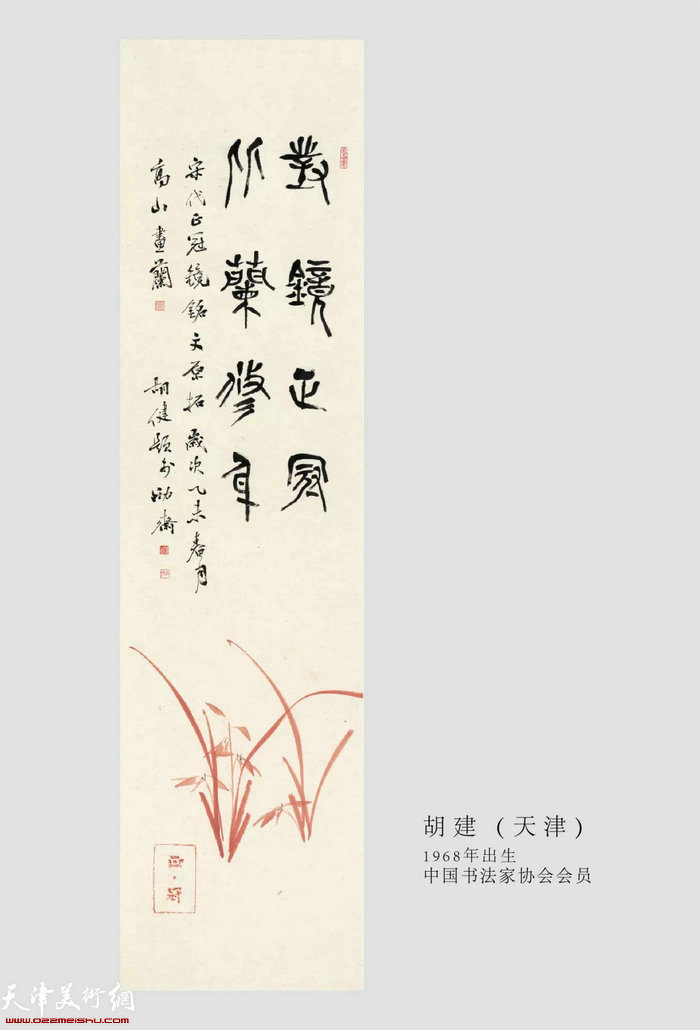 對鏡正冠
蘭修身
宋代正冠鏡銘文原拓 歲次乙未春月
高山畫蘭
胡健題於 齋
正·冠
胡建（天津）
1968年出生
中国书法家协会会员
天津美術網
www.022meishu.com